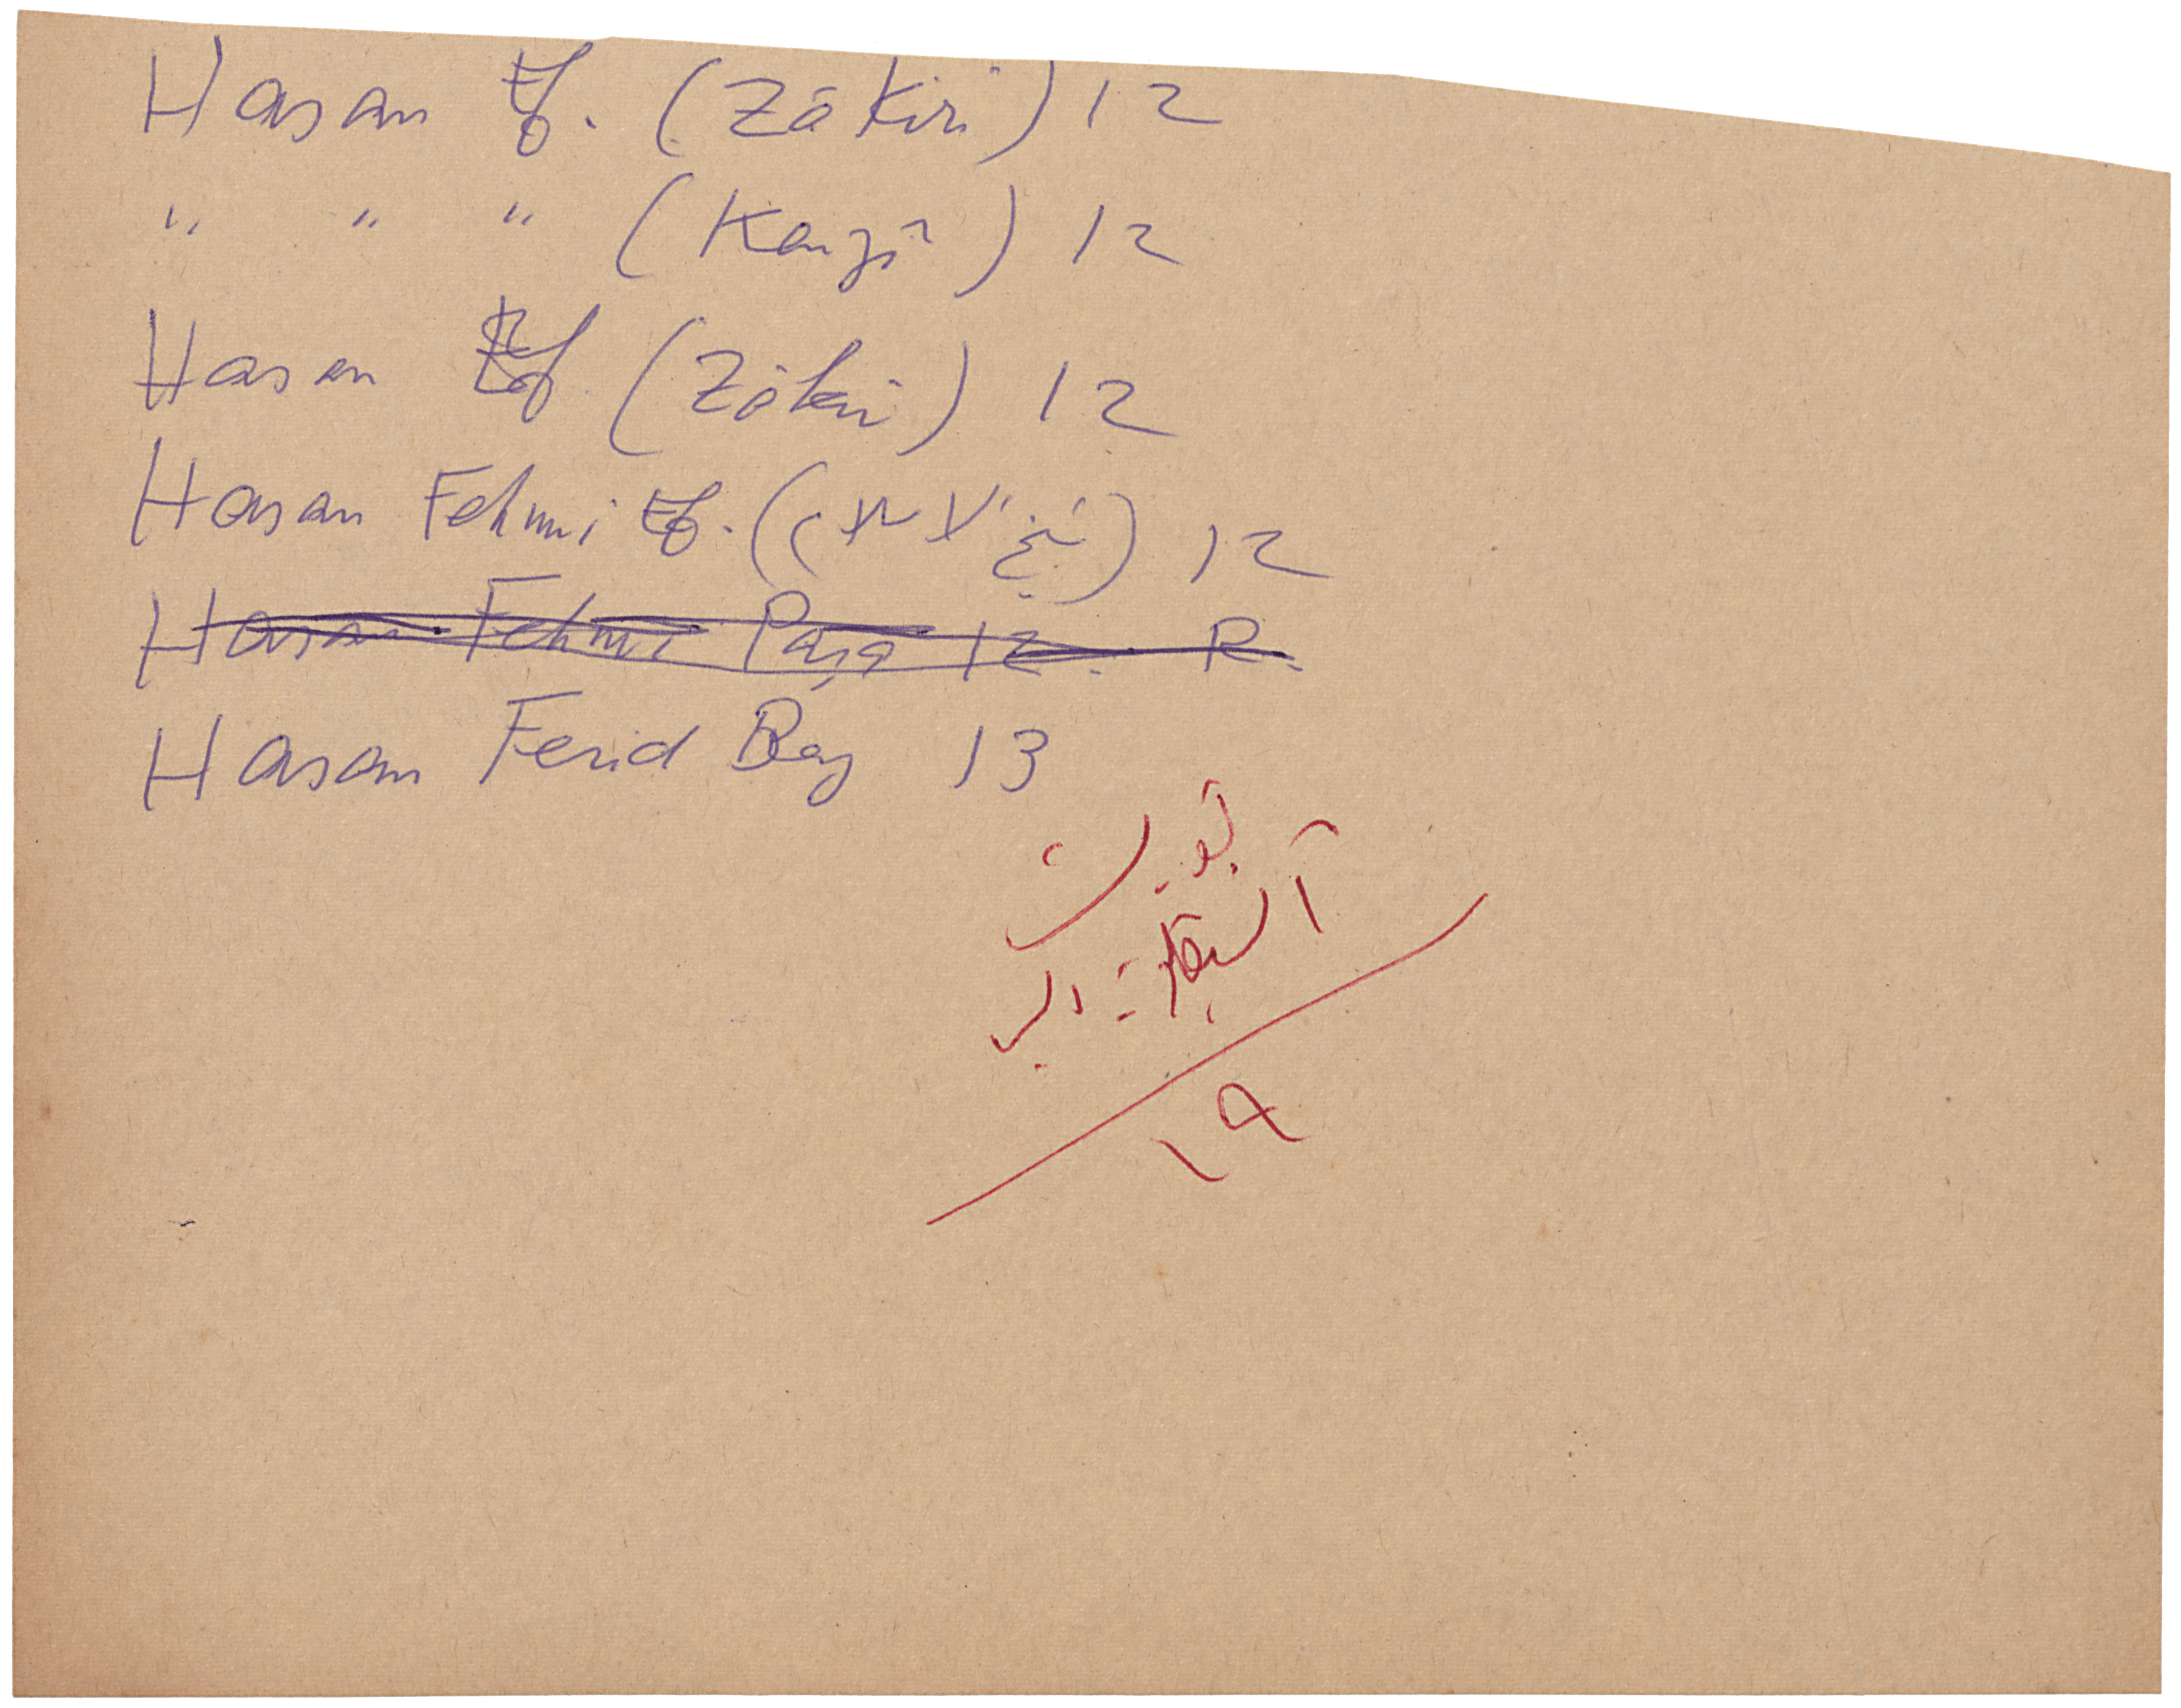 Hasan Ef. (Zâkiri) 12
" " " (Kanzî) 12
Hasan Ef. (Zâkiri) 12
Hasan Fehmi Ef. (شيخ الاسلام) 12
Hasan Fehmi Paşa 12. R.
Hasan Ferid Bey 13
١٩